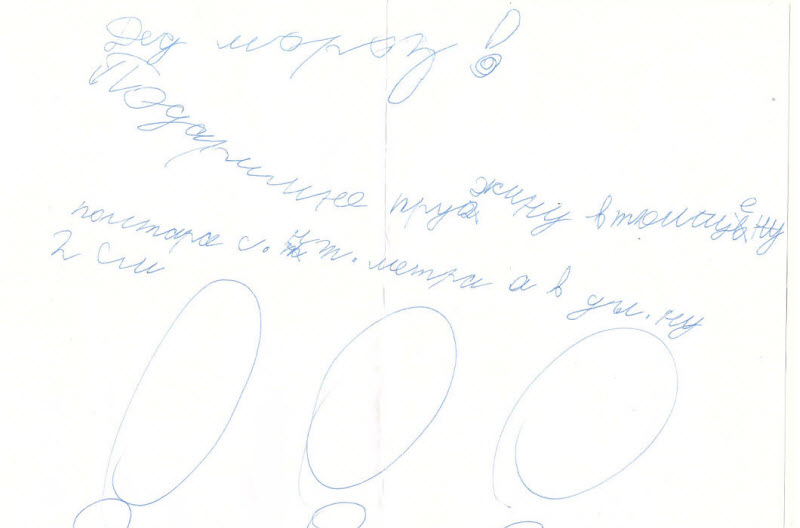 Дед мороз!
Подаримне пружину втолщену
полтара с.нт.метра а в длл.ну
2 см